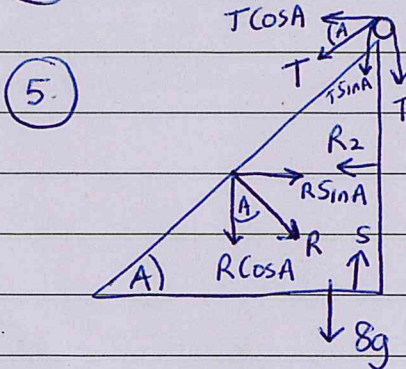 TCosA
A
T
TSinA
T
5.
R2
RSinA
A
R
S
A
RCosA
8g